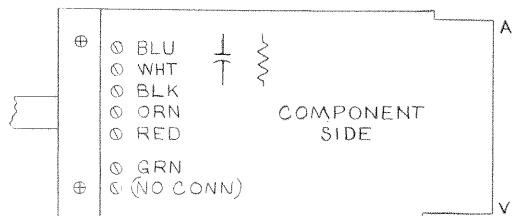 A
BLU
WHT
BLK
ORN
RED
GRN
(NO CONN)
COMPONENT
SIDE
V